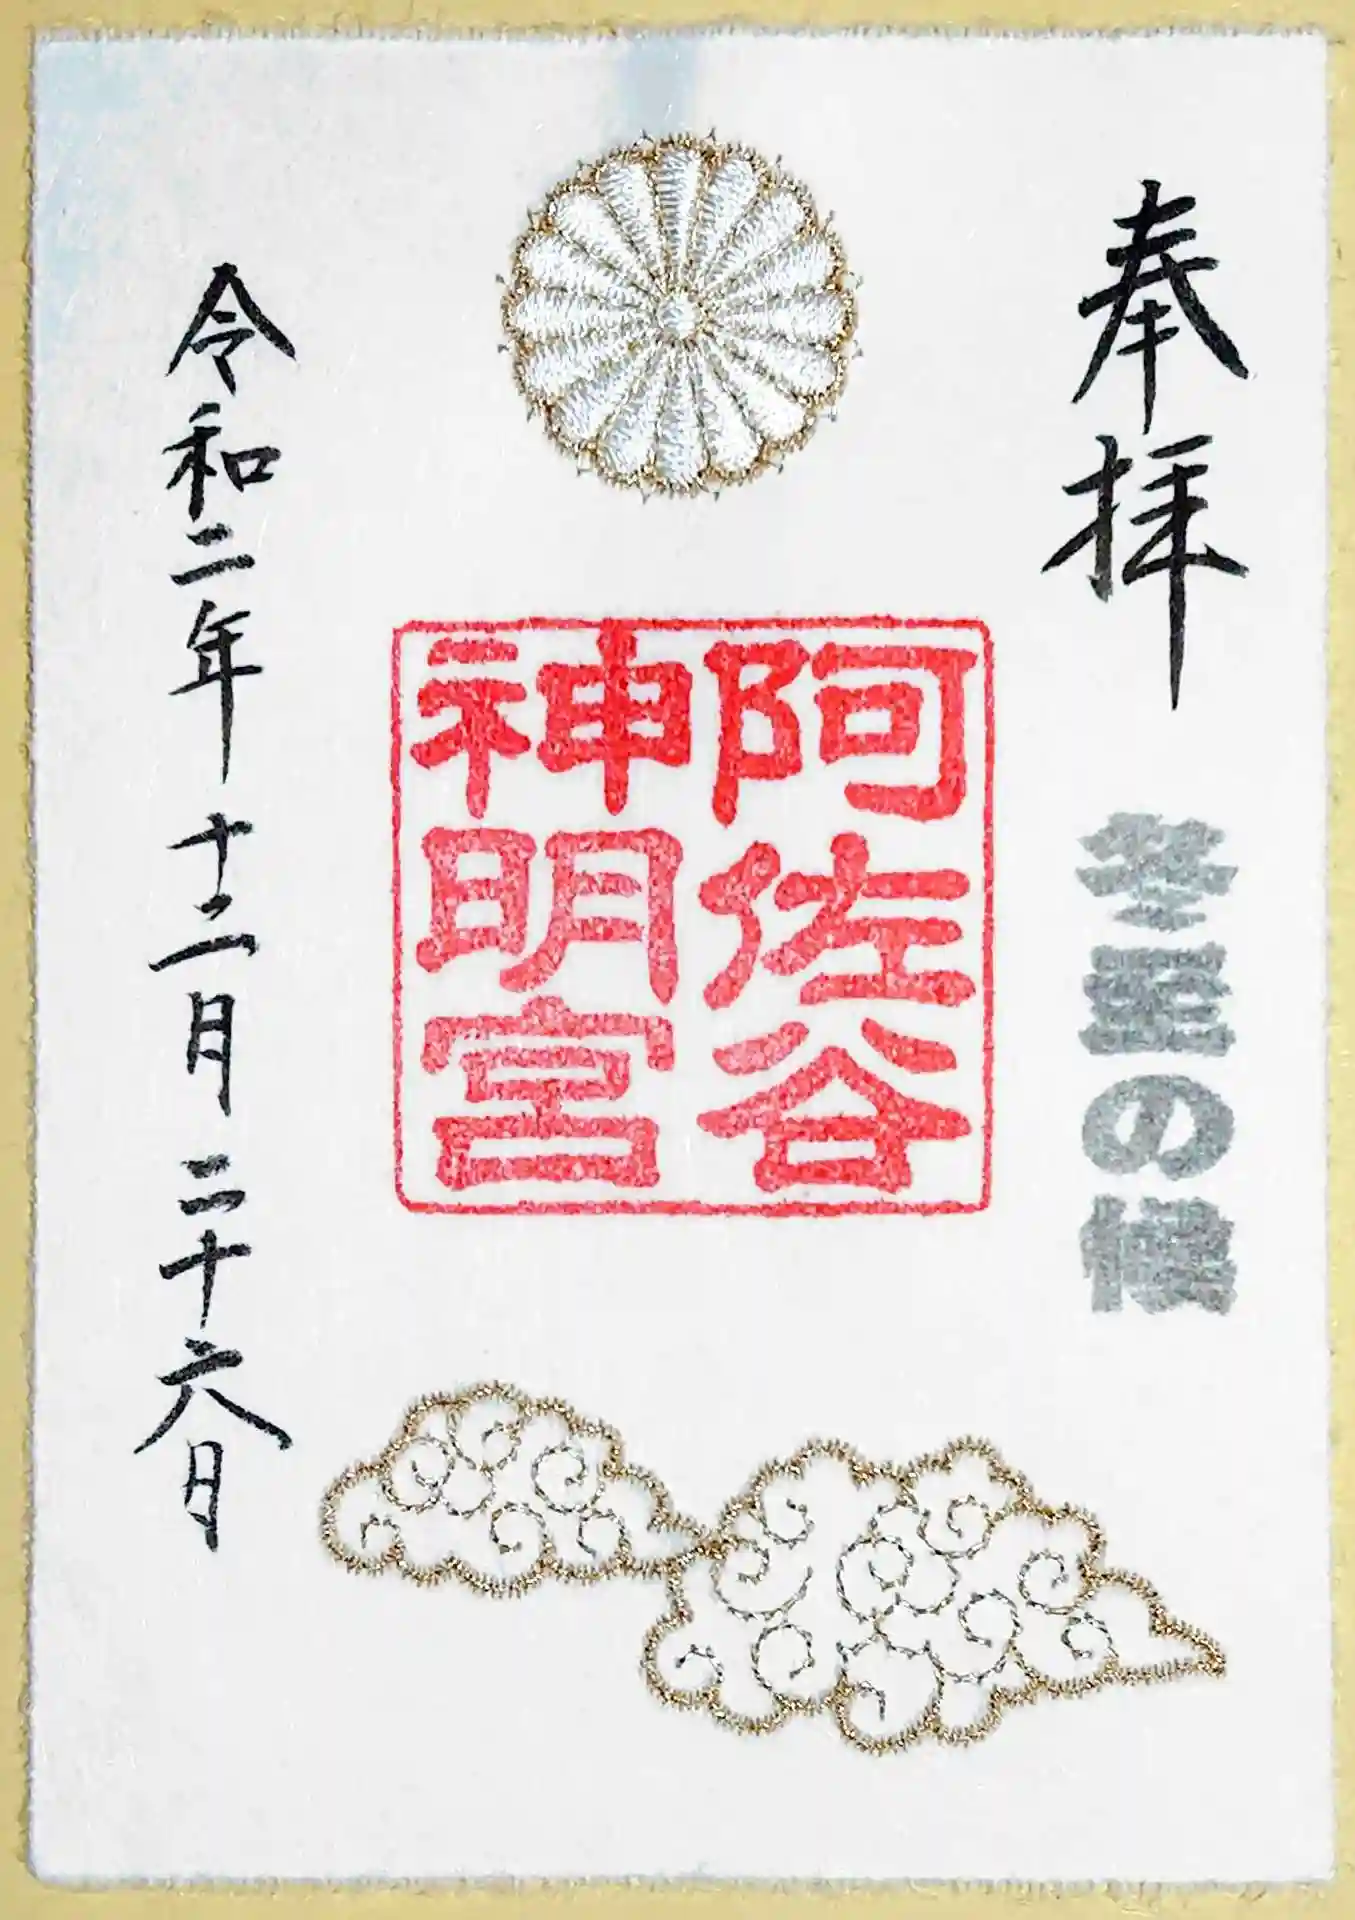 奉拝
冬至の候
阿佐谷
神明宮
令和二年十二月二十六日